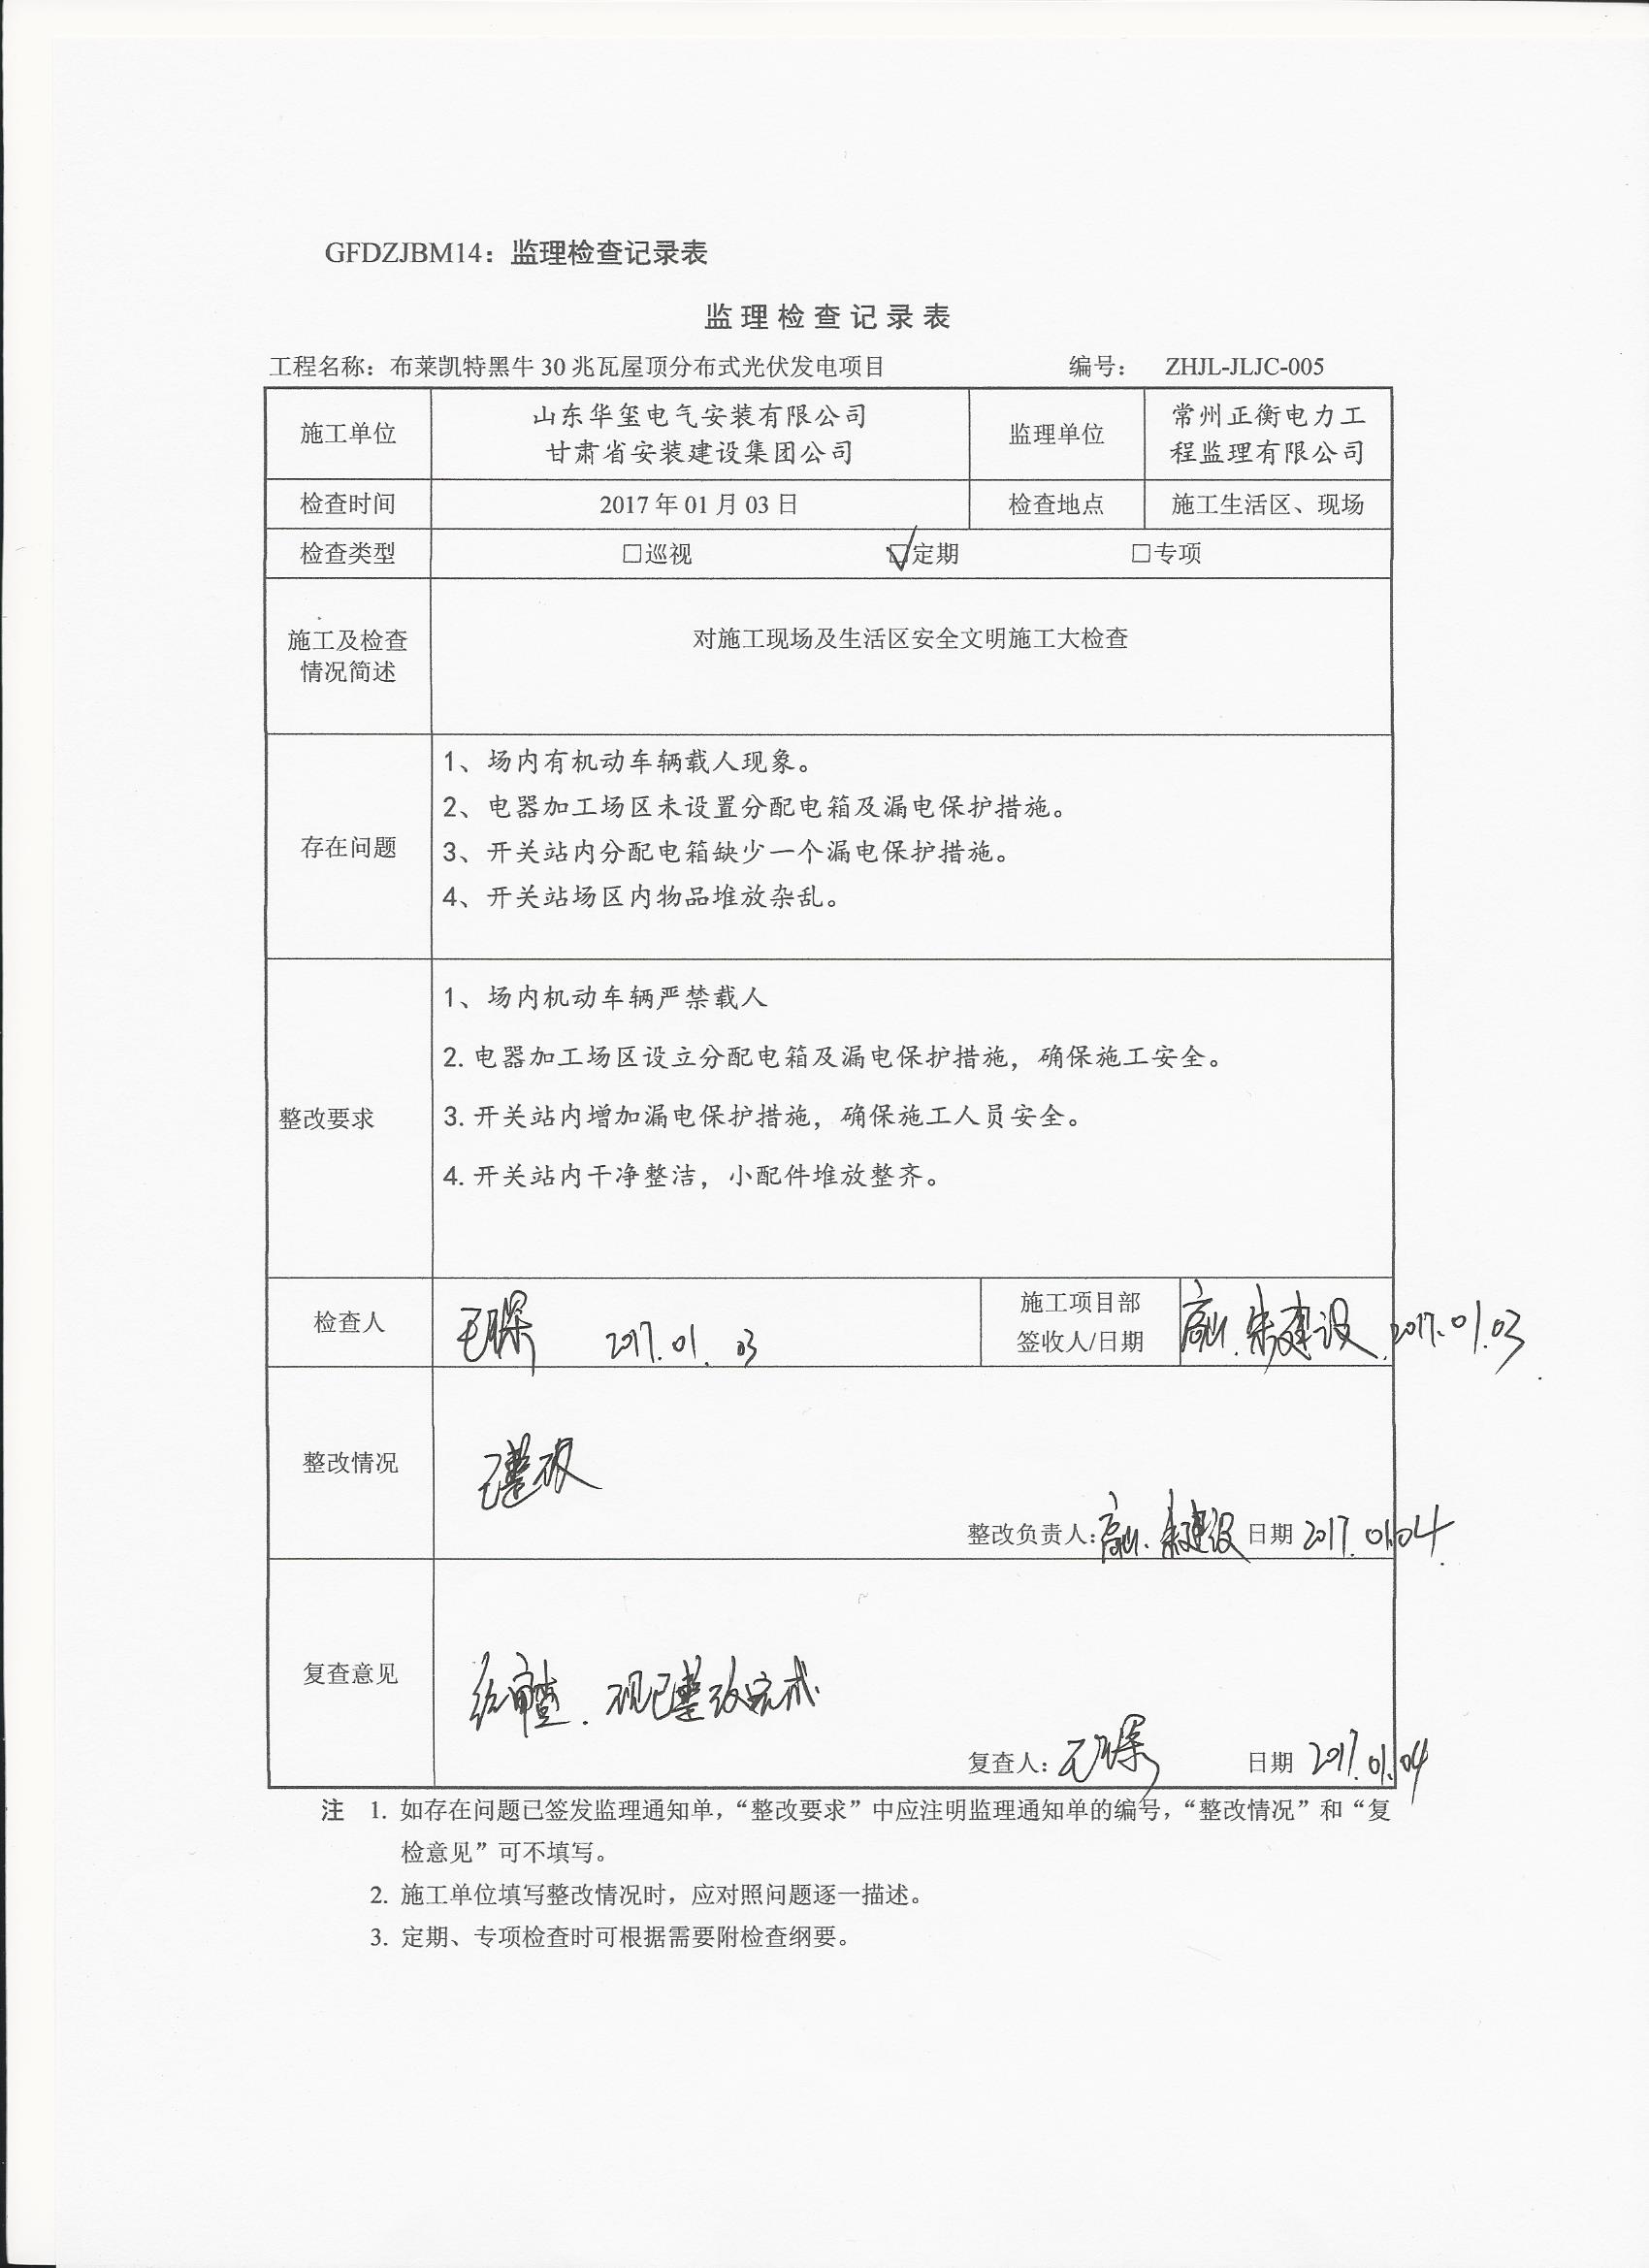 GFDZJBM14：监理检查记录表
监理检查记录表
工程名称：布莱凯特黑牛 30 兆瓦屋顶分布式光伏发电项目 编号： ZHJL-JLJC-005
施工单位 山东华玺电气安装有限公司 监理单位 常州正衡电力工
甘肃省安装建设集团公司 程监理有限公司
检查时间 2017 年 01 月 03 日 检查地点 施工生活区、现场
检查类型 □巡视 ☑定期 □专项
施工及检查 对施工现场及生活区安全文明施工大检查
情况简述
存在问题
1、场内有机动车辆载人现象。
2、电器加工场区未设置分配电箱及漏电保护措施。
3、开关站内分配电箱缺少一个漏电保护措施。
4、开关站场区内物品堆放杂乱。
整改要求
1、场内机动车辆严禁载人
2. 电器加工场区设立分配电箱及漏电保护措施，确保施工安全。
3. 开关站内增加漏电保护措施，确保施工人员安全。
4. 开关站内干净整洁，小配件堆放整齐。
检查人 2017.01.03 施工项目部
签收人/日期 高山.朱建设.2017.01.03
整改情况 已整改
整改负责人：高山.朱建设 日期 2017.01.04
复查意见 经审查.现已整改完成
复查人： 日期 2017.01.04
注 1. 如存在问题已签发监理通知单，“整改要求”中应注明监理通知单的编号，“整改情况”和“复
检意见”可不填写。
2. 施工单位填写整改情况时，应对照问题逐一描述。
3. 定期、专项检查时可根据需要附检查纲要。